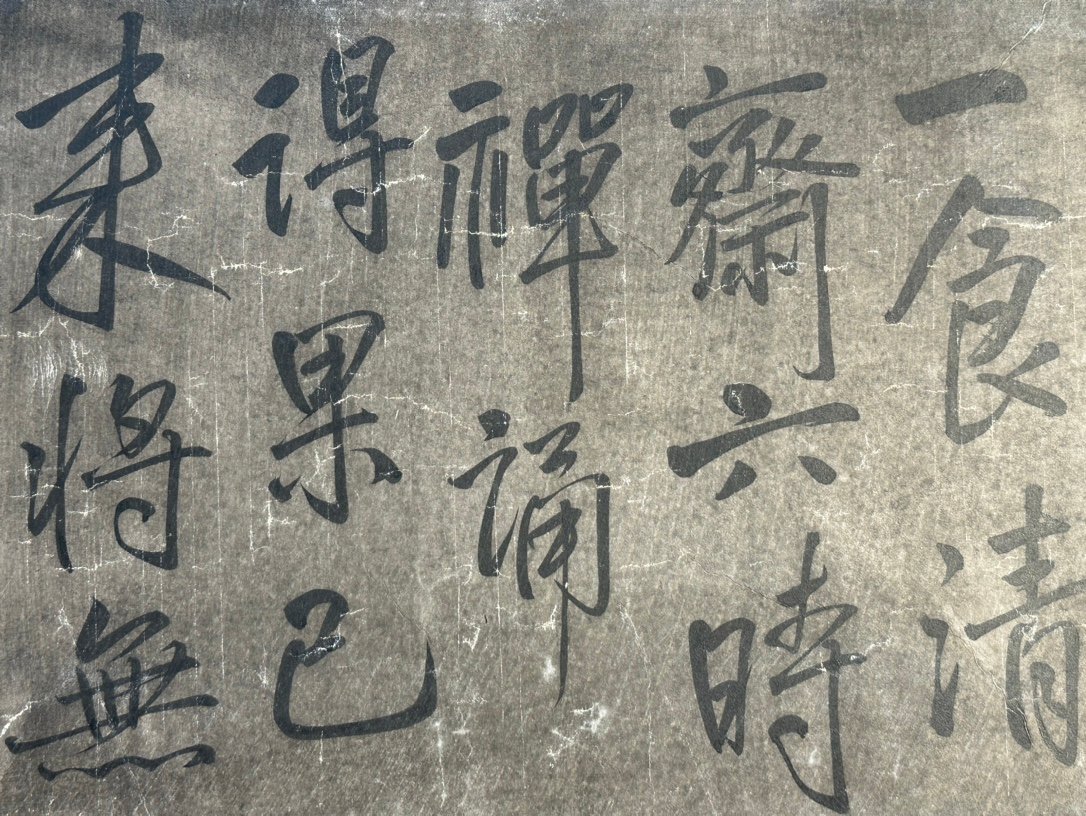 一食清
齋六時
禪誦
得果已
来將無